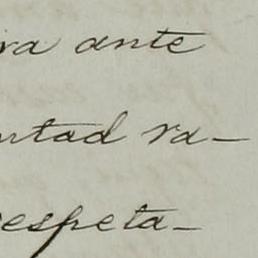 ra ante
ntad ra-
espeta-